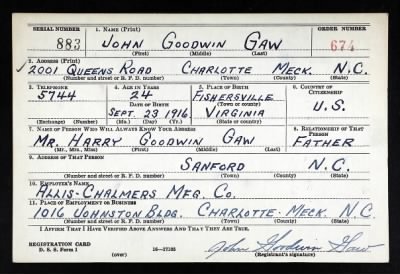 SERIAL NUMBER 1. NAME (Print) ORDER NUMBER
883 JOHN GOODWIN GAW 674
(First) (Middle) (Last)
2. ADDRESS (Print)
2001 QUEENS ROAD CHARLOTTE MECK. N.C.
(Number and street or R. F. D. number) (Town) (County) (State)
3. TELEPHONE 4. AGE IN YEARS 5. PLACE OF BIRTH 6. COUNTRY OF CITIZENSHIP
5744 24 FISHERSVILLE
DATE OF BIRTH (Town or county)
SEPT. 23 1916 VIRGINIA U.S.
(Exchange) (Number) (Mo.) (Day) (Yr.) (State or country)
7. NAME OF PERSON WHO WILL ALWAYS KNOW YOUR ADDRESS 8. RELATIONSHIP OF THAT PERSON
MR. HARRY GOODWIN GAW FATHER
(Mr., Mrs., Miss) (First) (Middle) (Last)
9. ADDRESS OF THAT PERSON
SANFORD N.C.
(Number and street or R. F. D. number) (Town) (County) (State)
10. EMPLOYER'S NAME
ALLIS-CHALMERS MFG. CO.
11. PLACE OF EMPLOYMENT OR BUSINESS
1016 JOHNSTON BLDG. CHARLOTTE-MECK. N.C.
(Number and street or R. F. D. number) (Town) (County) (State)
I AFFIRM THAT I HAVE VERIFIED ABOVE ANSWERS AND THAT THEY ARE TRUE.
REGISTRATION CARD
D. S. S. Form 1 16-17105 John Goodwin Gaw
(over) (Registrant's signature)